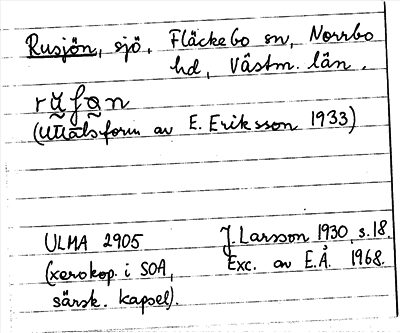 Rusjön, sjö, Fläckebo sn, Norrbo
hd, Västm. län.
rʉ̰fə̰n
(Uttalsform av E. Eriksson 1933)
ULMA 2905 J. Larsson 1930, s. 18.
(xerokop. i SOA, Exc. av E.Å. 1968.
särsk. kapsel).